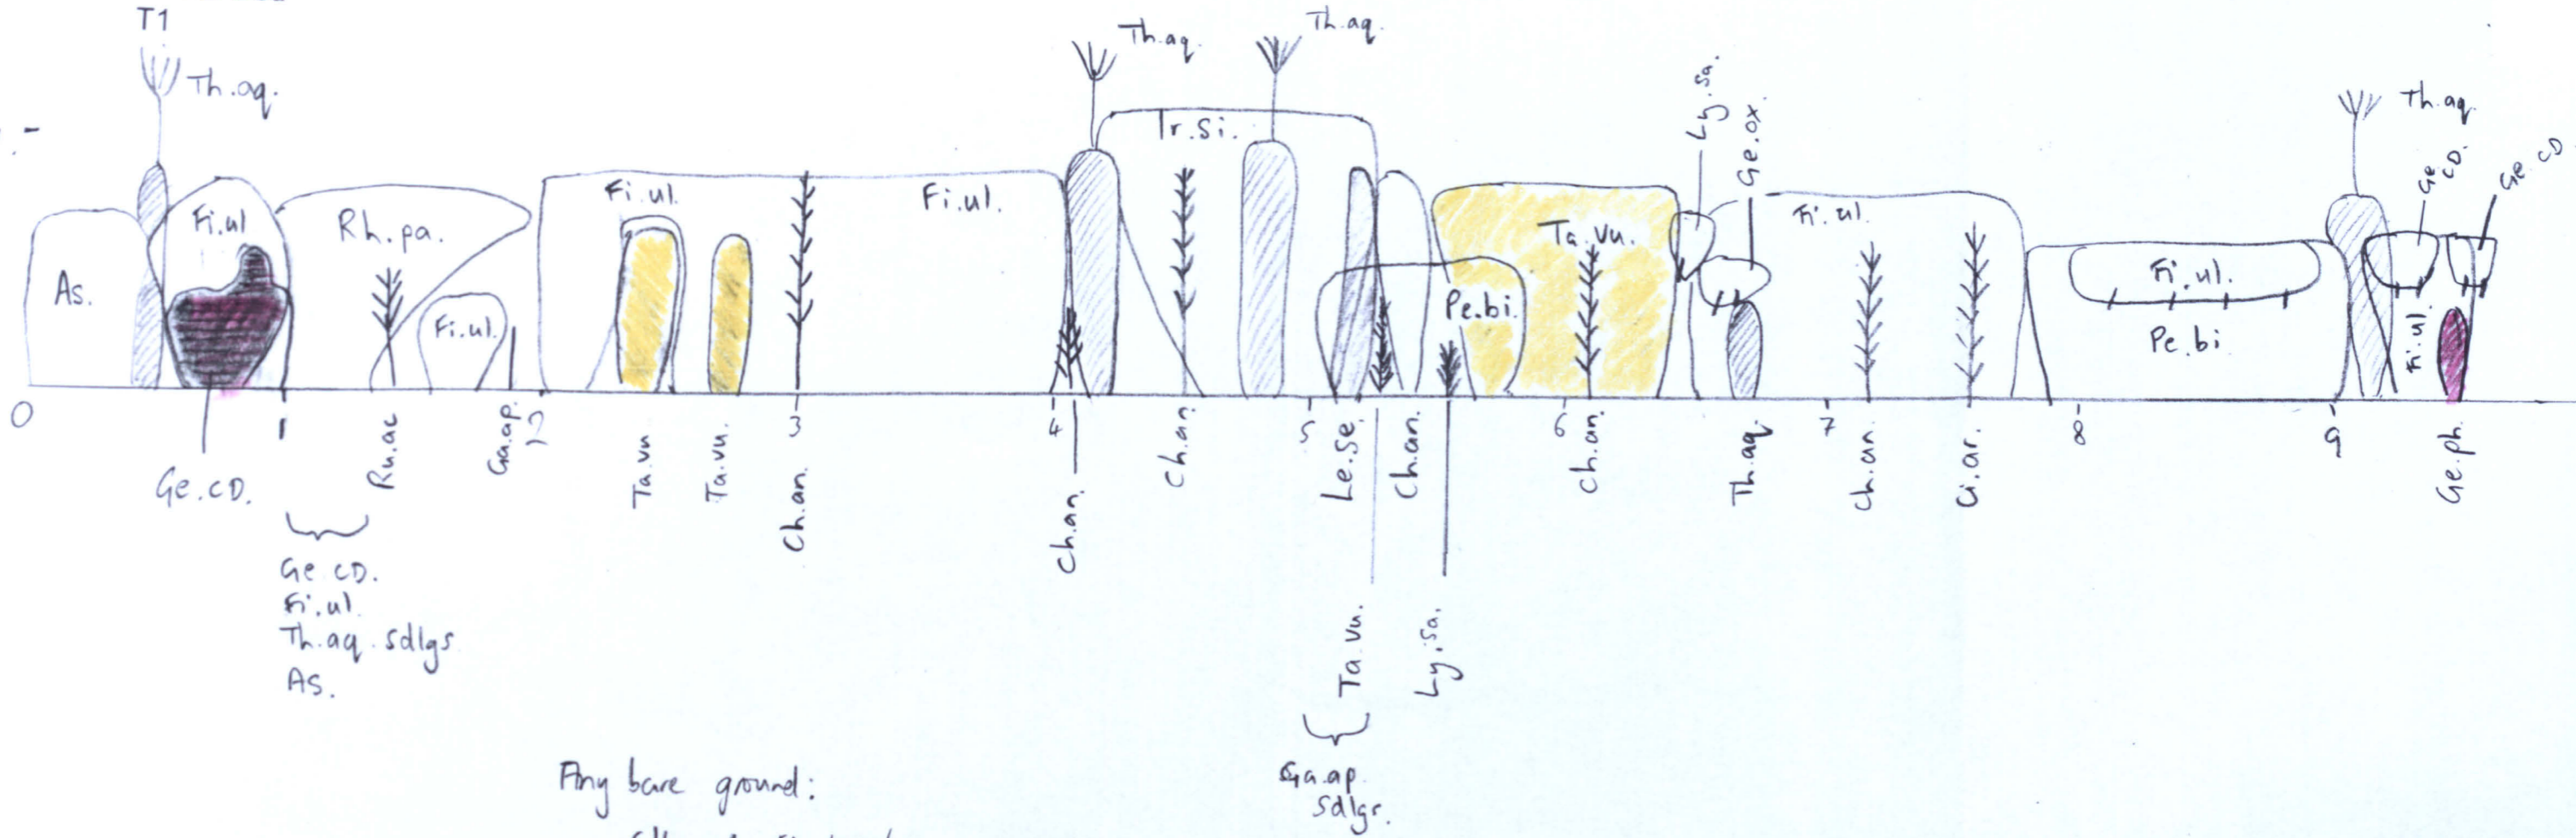 T1
Th.aq.
Th.aq.
Th.aq.
Tr.si.
Ly.sa.
Ge.ox.
Th.aq.
Ge CD.
Ge CD
As.
Fi.ul
Rh.pa.
Fi.ul.
Fi.ul.
Fi.ul.
Pe.bi.
Ta.vu.
Fi.ul.
Fi.ul.
Pe.bi
Fi.ul.
0
1
2
3
4
5
6
7
8
9
Ge.CD.
Ru.ac
Ga.ap.
Ta.vu
Ta.vu.
Ch.an.
Ch.an.
Ch.an.
Le.se.
Ch.an.
Ch.an.
Th.aq.
Ch.an.
Ci.ar.
Ge.ph.
Ge.CD.
Fi.ul.
Th.aq. sdlgs
As.
Ta.vu.
Ly.sa.
Ga.ap.
sdlgs.
Any bare ground: